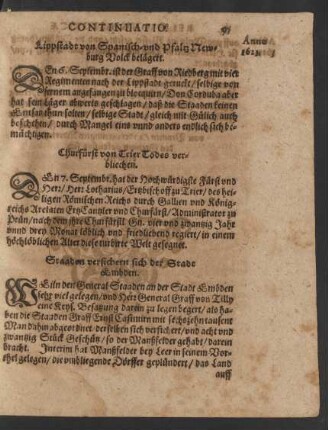 CONTINUATIO
91
Anno
1623.
Lippstadt von Spanisch- vnd Pfaltz New-
burg Volck belägert.
DEn 6. Septembr. ist der Graff von Rietberg mit vier
Regimenten nach der Lippstadt geruckt / selbige von
fernem angefangen zu blocquirn / Don Corduba aber
hat sein Läger abwerts geschlagen / daß die Staaden keinen
Entsatz thun solten / selbige Stadt / gleich mit Gülich auch
beschehen / durch Mangel eins vnnd anders endlich sich be-
mächtigen.
Churfürst von Trier Todes ver-
bliechen.
DEn 7. Septembr. hat der Hochwürdigste Fürst vnd
Herr / Herr Lotharius / Ertzbischoff zu Trier / des hei-
ligen Römischen Reichs durch Gallien vnd König-
reichs Arelaten Ertz Cantzler vnd Churfürst / Administrator zu
Prün / nach dem ihre Churfürstl. Gn. vier vnd zwantzig Jahr
vnnd drey Monat löblich vnd friedliebend regiert / in einem
hochlöblichen Alter diese trübte Welt gesegnet.
Staaden versichern sich der Stadt
Embden.
WEiln den General Staaden an der Stadt Embden
sehr viel gelegen / vnd Herr General Graff von Tilly
eine Keys. Besatzung darein zu legen begert / als ha-
ben die Staaden Graff Ernst Casimirn mit sechszehn tausent
Man dahin abgeordnet derselben sich versichert / vnd acht vnd
zwantzig Stück Geschütz / so der Manßfelder gehabt / darein
bracht. Interim hat Manßfelder bey Leer in seinem Vor-
thel gelegen / die vmbliegende Dörffer geplündert / das Land
auff